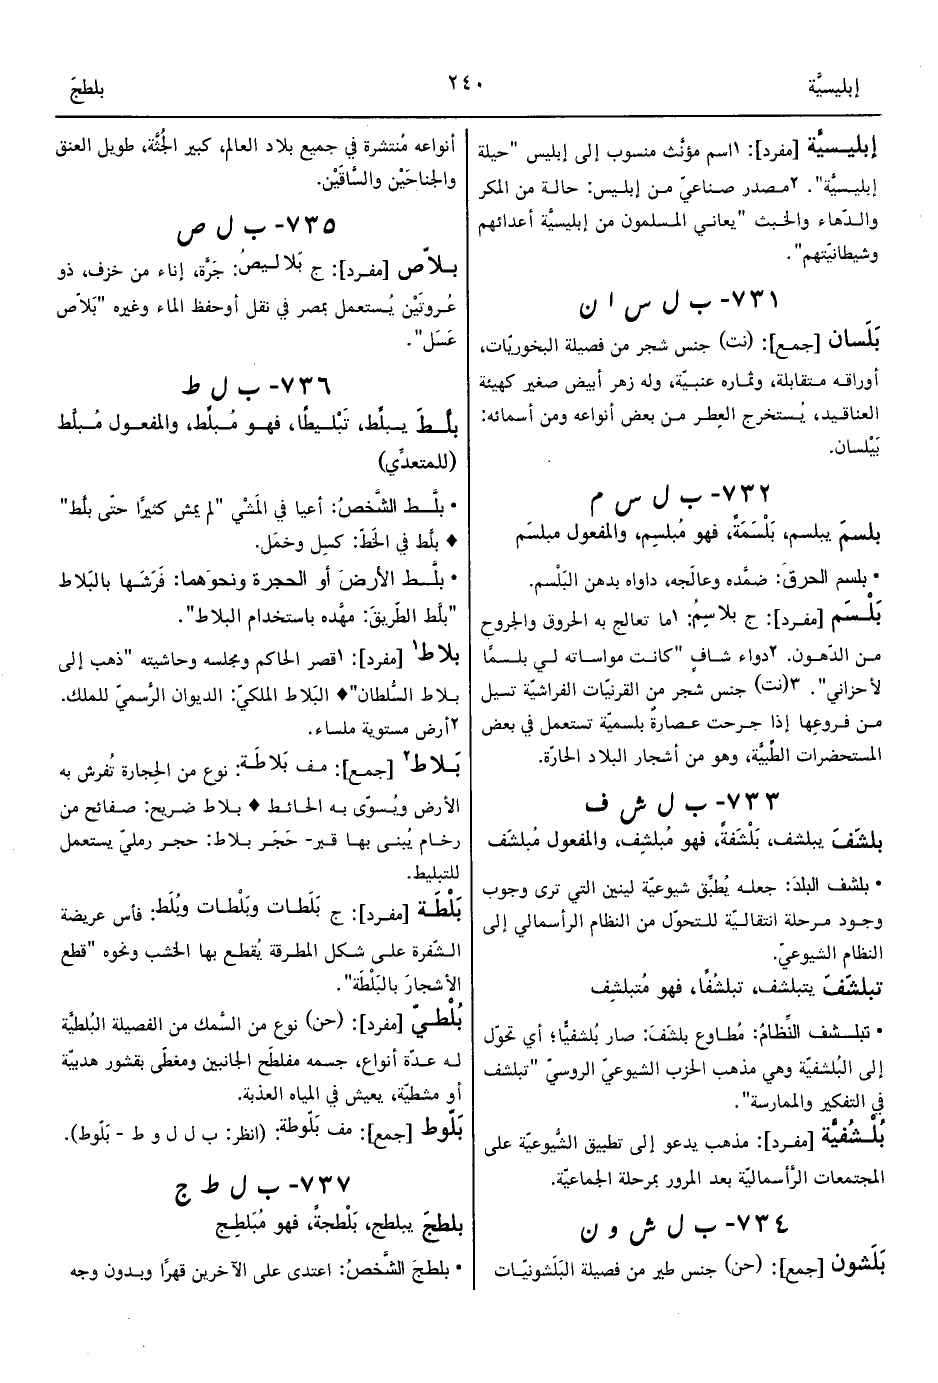 إبليسيَّة
٢٤٠
بلطجَ
إبليـسيَّة [مفرد]: ١اسم مؤنَّث منسوب إلى إبليس "حيلة
إبليـسيَّة". ٢مـصدر صناعيّ مـن إبليس: حالة من المكر
والـدّهاء والخبث "يعاني المسلمون من إبليسيَّة أعدائهم
وشيطانيّتهم".
٧٣١- ب ل س ا ن
بَلَسان [جمع]: (نت) جنس شجر من فصيلة البخوريّات،
أوراقه متقابلة، وثماره عنبيّة، وله زهر أبيض صغير كهيئة
العناقيد، يُستخرج العِطر مـن بعض أنواعه ومن أسمائه:
بَيْلسان.
٧٣٢- ب ل س م
بلسمَ يبلسم، بَلْسَمَةً، فهو مُبلسِم، والمفعول مبلسَم
• بلسم الحرقَ: ضمَّده وعالجه، داواه بدهن البَلْسم.
بَلْـسَم [مفـرد]: ج بلاسِمُ: ١ما تعالج به الحروق والجروح
مـن الدّهون. ٢دواء شـافٍ "كانت مواساته لـي بلـسمًا
لأحزاني". ٣(نت) جنس شجر من القرنيّات الفراشيّة تسيل
مـن فـروعها إذا جـرحت عـصارةٌ بلسميّة تستعمل في بعض
المستحضرات الطِّبيَّة، وهو من أشجار البلاد الحارّة.
٧٣٣- ب ل ش ف
بلشفَ يبلشف، بَلْشَفةً، فهو مُبلشِف، والمفعول مُبلشَف
• بلشف البلدَ: جعله يُطبِّق شيوعيّة لينين التي ترى وجوب
وجـود مـرحلة انتقالـيّة للـتحوّل من النظام الرأسمالي إلى
النظام الشيوعيّ.
تبلشَفَ يتبلشف، تبلشُفًا، فهو مُتبلشِف
• تبلـشف النِّظامُ: مُطاوع بلشفَ: صار بُلشفيًّا؛ أي تحوّل
إلى البُلشفيّة وهي مذهب الحزب الشيوعيّ الروسيّ "تبلشف
في التفكير والممارسة".
بُلْـشُفيَّة [مفـرد]: مذهب يدعو إلى تطبيق الشُّيوعيّة على
المجتمعات الرَّأسماليّة بعد المرور بمرحلة الجماعيّة.
٧٣٤- ب ل ش و ن
بَلَشون [جمع]: (حن) جنس طير من فصيلة البَلَشونيّـات
أنواعه مُنتشرة في جميع بلاد العالم، كبير الجُثَّة، طويل العنق
والجناحَيْن والسَّاقَيْن.
٧٣٥- ب ل ص
بـلاّص [مفـرد]: ج بَلاليصُ: جَرَّة، إناء من خزف، ذو
عُـروتَيْن يُـستعمل بمصر في نقل أوحفظ الماء وغيره "بَلاّص
عَسَل".
٧٣٦- ب ل ط
بلَّـطَ يـبلّط، تَبْلـيطًا، فهـو مُـبلِّط، والمفعـول مُـبلَّط
(للمتعدِّي)
• بلَّـط الشَّخصُ: أعيا في المَشْي "لم يمشِ كثيرًا حتّى بلَّط"
♦ بلَّط في الخَطّ: كسِل وخمَل.
• بلَّـط الأرضَ أو الحجرة ونحوَهما: فَرَشَـها بالبَلاط
"بلَّط الطّريقَ: مهَّده باستخدام البلاط".
بلاط١ [مفرد]: ١قصر الحاكم ومجلسه وحاشيته "ذهب إلى
بـلاط السُّلطان"♦ البَلاط الملكيّ: الديوان الرَّسميّ للملك.
٢أرض مستوية ملساء.
بَـلاط٢ [جمع]: مـف بَلاطَـة: نوع من الحِجارة تُفرش به
الأرض ويُسوَّى بـه الحائـط ♦ بـلاط ضـريح: صـفائح من
رخـام يُبنـى بها قبر- حَجَر بـلاط: حجر رمليّ يستعمل
للتبليط.
بَلْطَة [مفرد]: ج بَلَطات وبَلْطات وبُلَط: فأس عريضة
الـشّفرة علـى شكل المطرقة يُقطع بها الخشب ونحوه "قطع
الأشجارَ بالبَلْطَة".
بُلْطـيّ [مفرد]: (حن) نوع من السَّمك من الفصيلة البُلطيَّة
لـه عـدّة أنواع، جسمه مفلطح الجانبين ومغطًّى بقشور هدبيّة
أو مشطيّة، يعيش في المياه العذبة.
بَلّوط [جمع]: مف بَلّوطة: (انظر: ب ل ل و ط - بَلّوط).
٧٣٧- ب ل ط ج
بلطجَ يبلطج، بَلْطجةً، فهو مُبَلطِج
• بلطجَ الشَّخصُ: اعتدى على الآخرين قهرًا وبـدون وجه